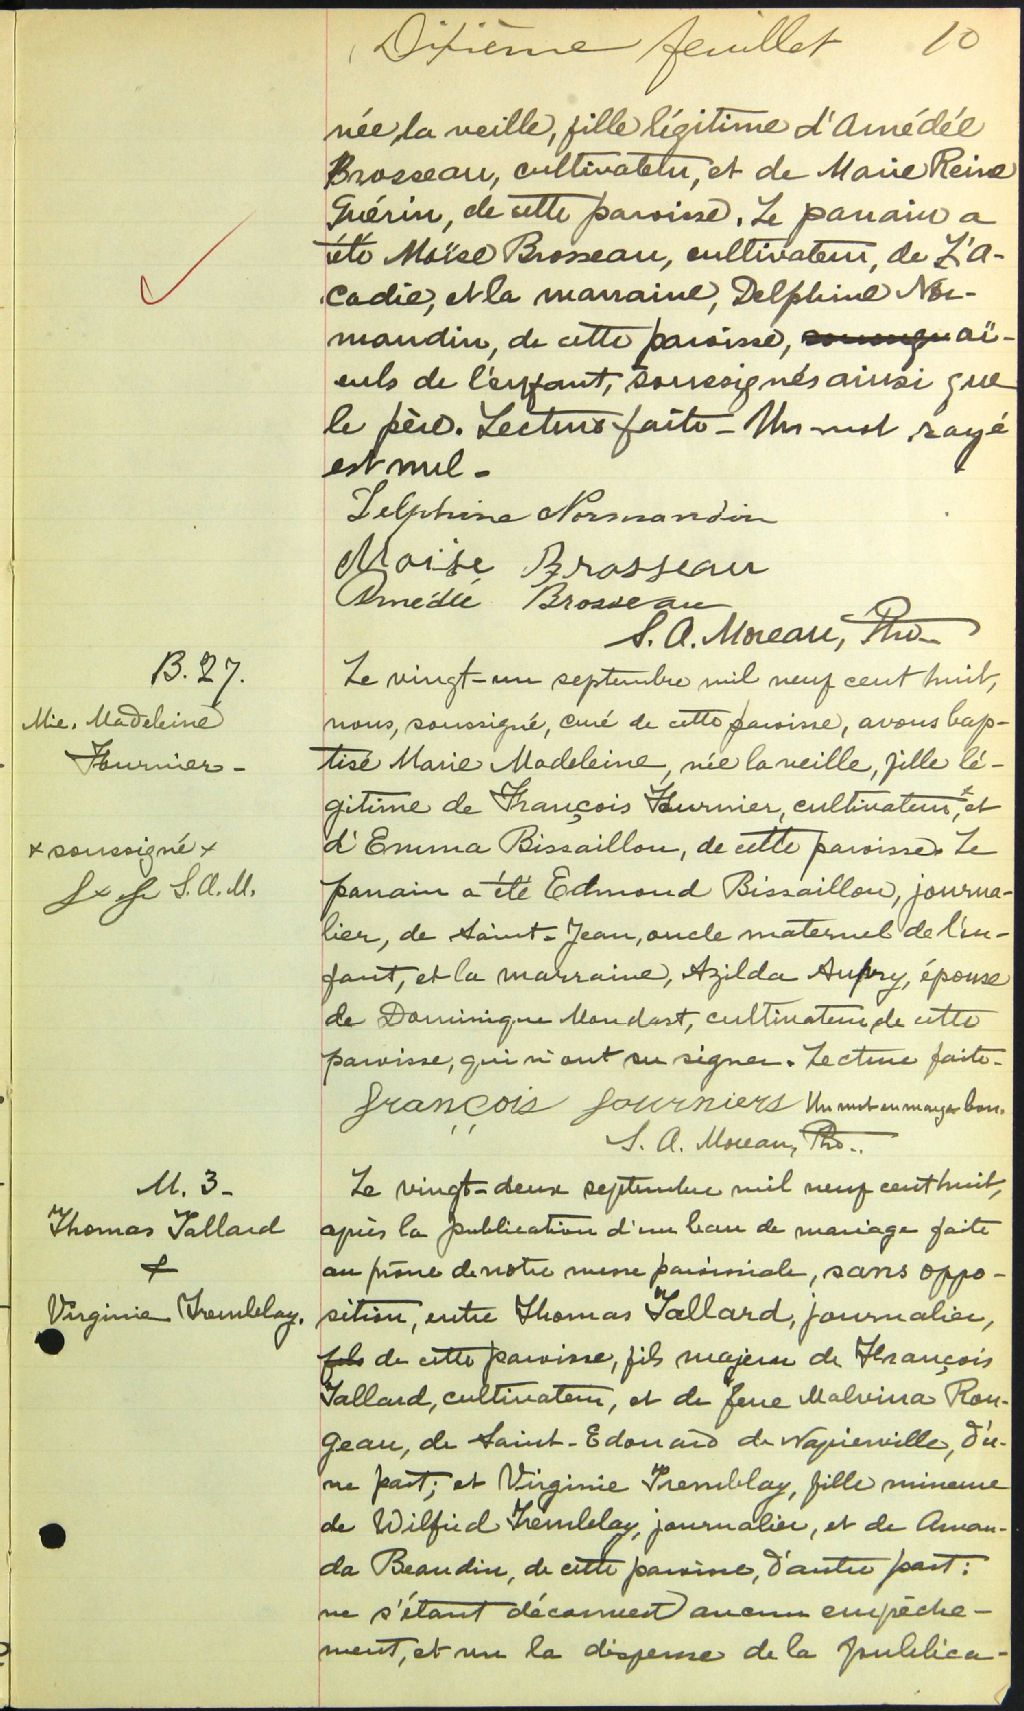 Dixième feuillet 10
née la veille, fille légitime d'Amédée
Brosseau, cultivateur, et de Marie Reine
Guérin, de cette paroisse. Le parrain a
été Moïse Brosseau, cultivateur, de L'A-
cadie, et la marraine, Delphine Nor-
mandin, de cette paroisse, aï-
euls de l'enfant, soussignés ainsi que
le père. Lecture faite - Un mot rayé
est nul -
Delphine Normandin
Moise Brosseau
Amédée Brosseau
S. A. Moreau, Ptre
B. 27.
Mie. Madeleine
Fournier -
x soussigné x
S. A. M.
Le vingt-un septembre mil neuf cent huit,
nous, soussigné, curé de cette paroisse, avons bap-
tisé Marie Madeleine, née la veille, fille lé-
gitime de François Fournier, cultivateur, x et
d'Emma Bissaillon, de cette paroisse. Le
parrain a été Edmond Bissaillon, journa-
lier, de Saint-Jean, oncle maternel de l'en-
fant, et la marraine, Azilda Aupry, épouse
de Dominique Mondast, cultivateur de cette
paroisse, qui n'ont su signer. Lecture faite -
françois fourniers Un mot en marge bon.
S. A. Moreau, Ptre.
M. 3 -
Thomas Tallard
&
Virginie Tremblay.
Le vingt-deux septembre mil neuf cent huit,
après la publication d'un ban de mariage faite
au prône de notre messe paroissiale, sans oppo-
sition, entre Thomas Tallard, journalier,
fils de cette paroisse, fils majeur de François
Tallard, cultivateur, et de feue Malvina Ron-
geau, de Saint-Edouard de Napierville, d'u-
ne part; et Virginie Tremblay, fille mineure
de Wilfrid Tremblay, journalier, et de Aman-
da Beaudin, de cette paroisse, d'autre part:
ne s'étant découvert aucun empêche-
ment, et vu la dispense de la publica-